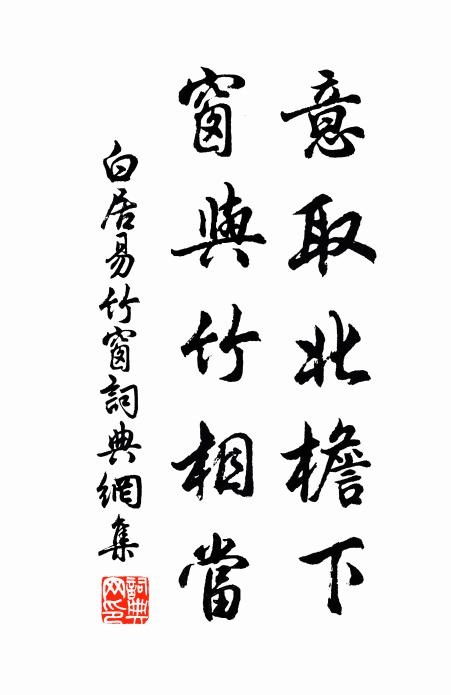 意取北檐下
窗與竹相當
白居易竹窗詞典網集
詞典网印